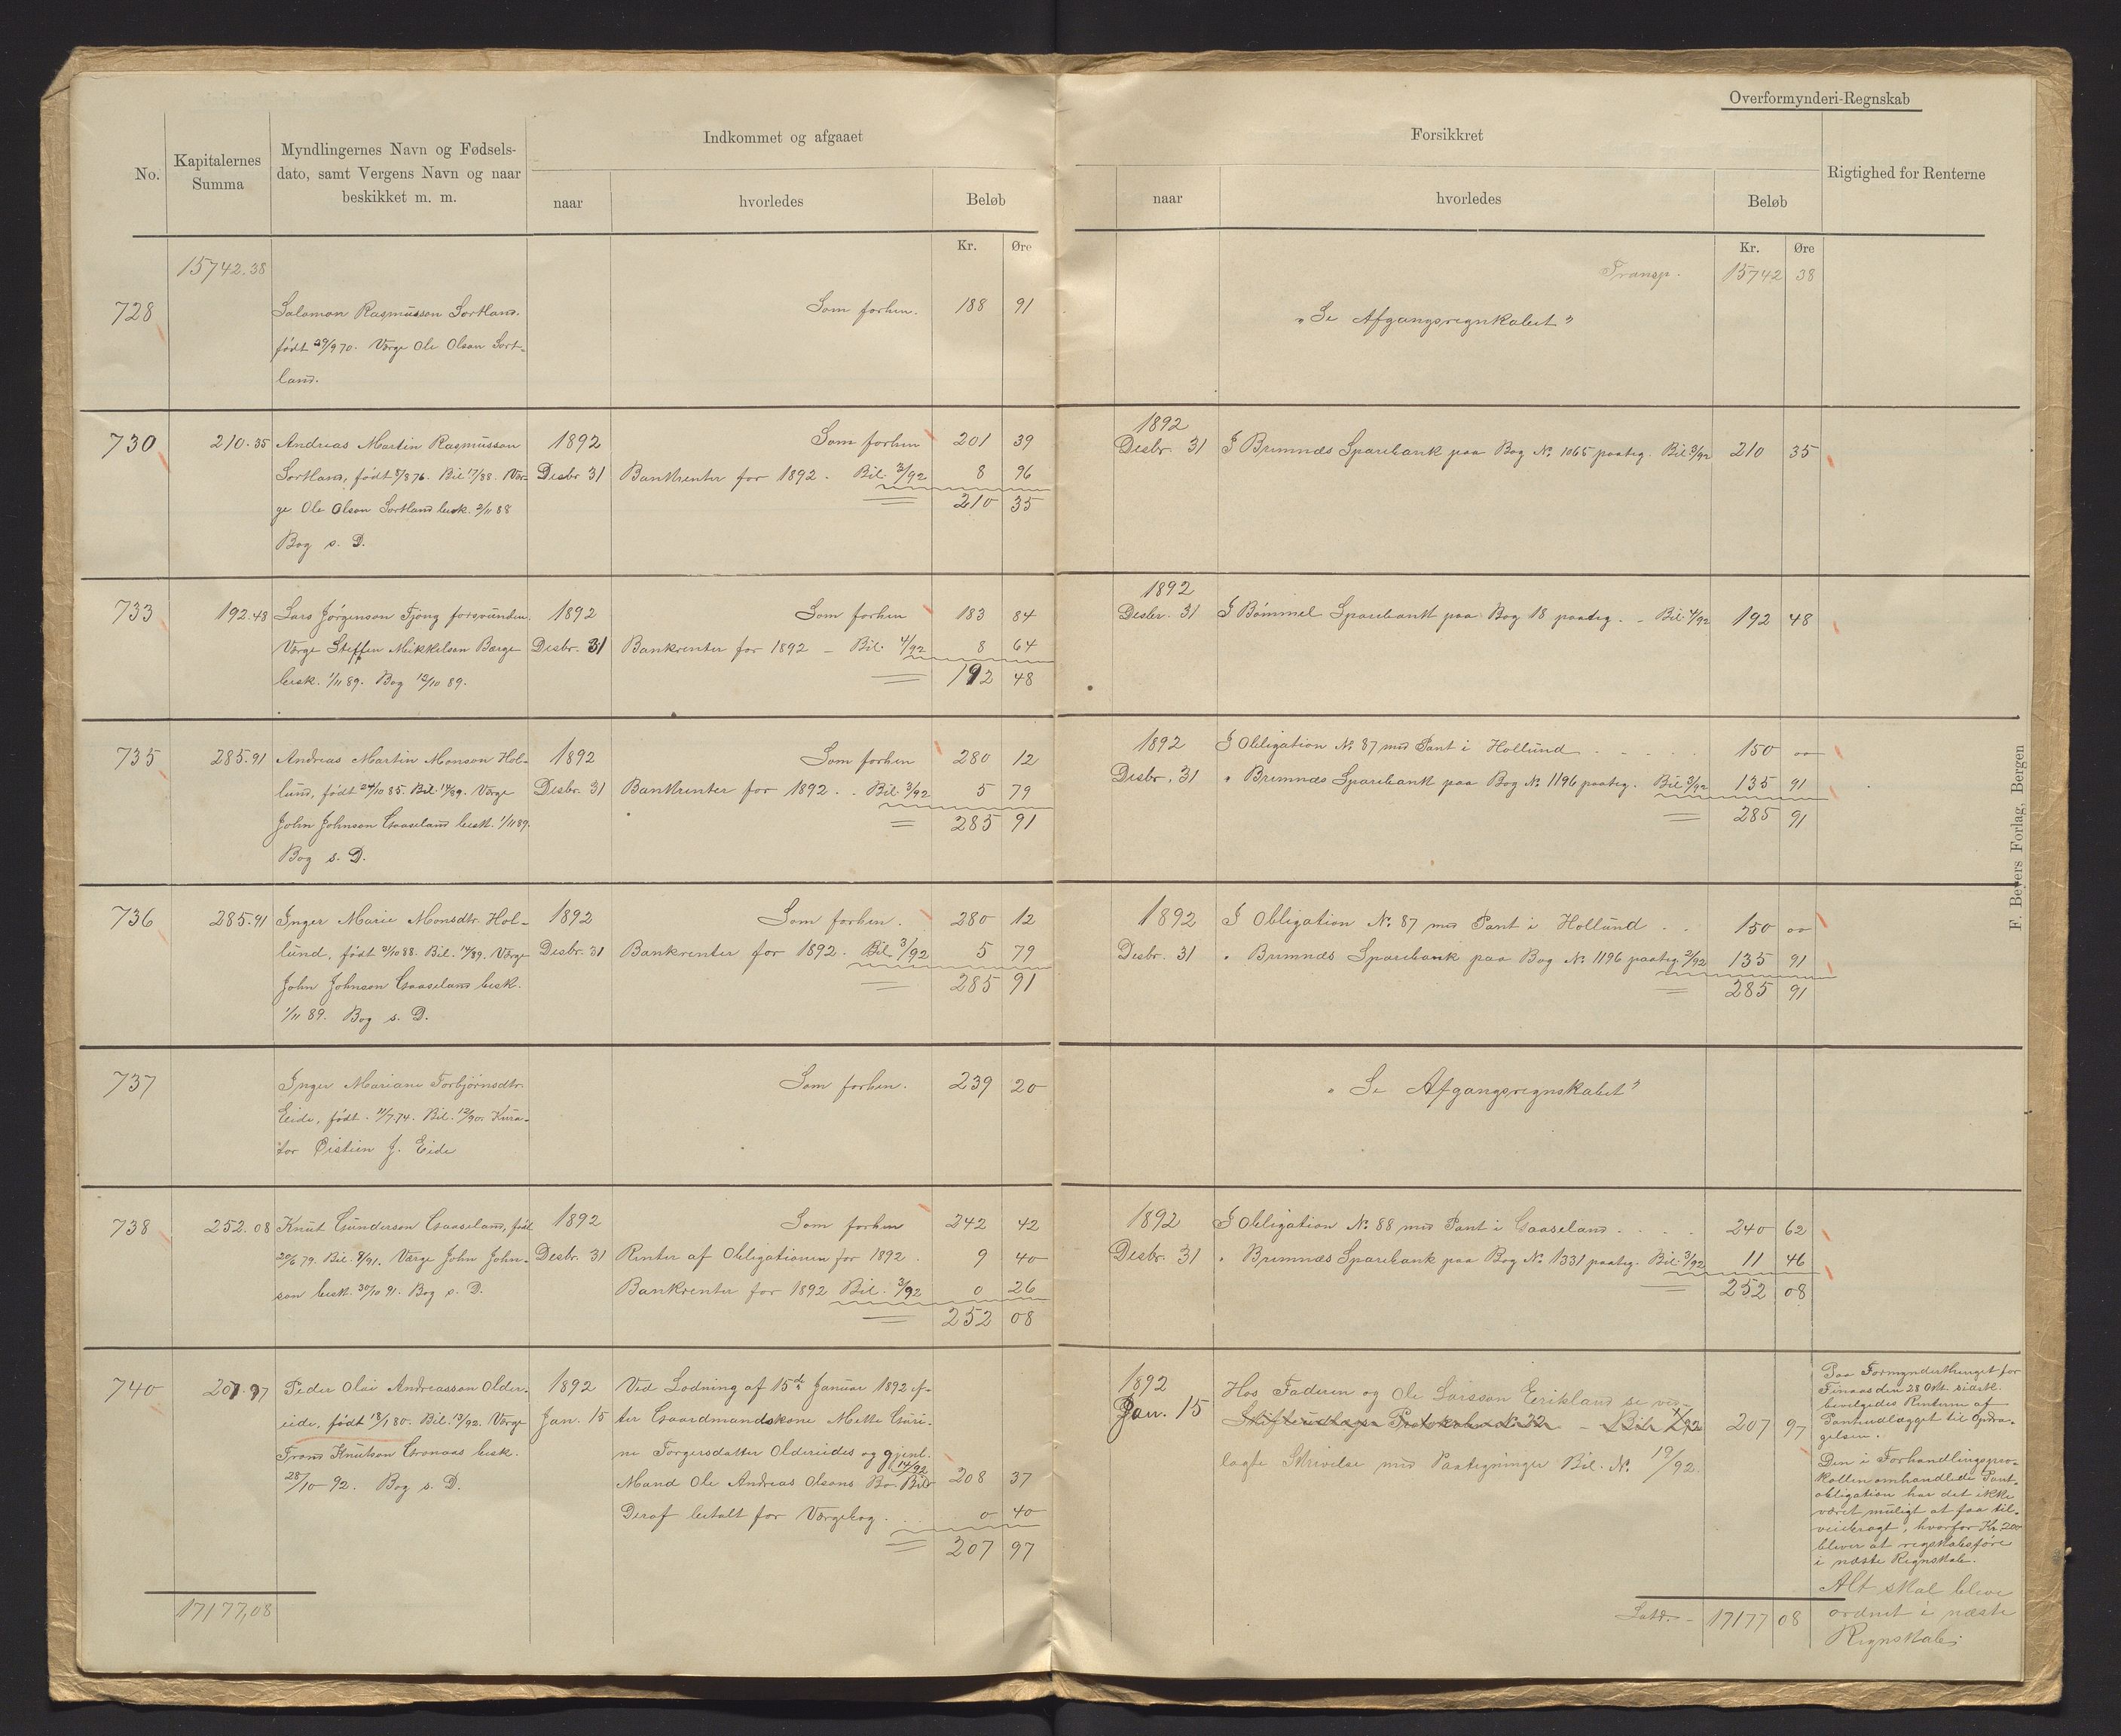 Overformynderi-Regnskab
No.
Kapitalernes Summa
Myndlingernes Navn og Fødsels-
dato, samt Vergens Navn og naar
beskikket m. m.
Indkommet og afgaaet
naar
hvorledes
Beløb
Kr. Øre
Forsikkret
naar
hvorledes
Beløb
Kr. Øre
Rigtighed for Renterne
15742.38
Transp. 15742 38
728
Salomon Rasmusson Sortland.
født 29/9 70. Værge Ole Olson Sort-
land.
Som forhen. 188 91
"Se Afgangsregnskabet"
730 210.35
Andreas Martin Rasmusson
Sortland, født 5/8 76. Bil. 17/88. Vær-
ge Ole Olson Sortland besk. 2/11 88
Bog s. D.
1892 Som forhen 201 39
Desbr 31 Bankrenter for 1892. Bil. 3/92 8 96
210 35
1892
Desbr. 31 I Bremnæs Sparebank paa Bog No. 1065 paateg. Bil 3/92 210 35
733 192.48
Lars Jørgenson Tjong forsvunden.
Værge Steffen Mikkelson Børge
besk. 1/11 89. Bog 12/10 89.
1892 Som forhen 183 84
Desbr. 31 Bankrenter for 1892 - Bil. 4/92 8 64
192 48
1892
Desbr. 31 I Bømmel Sparebank paa Bog 18 paateg. - Bil. 4/92 192 48
735 285.91
Andreas Martin Monson Hol-
lund, født 24/10 85. Bil. 14/89. Værge
John Johnson Gaaseland besk. 1/11 89.
Bog s. D.
1892 Som forhen 280 12
Desbr. 31 Bankrenter for 1892. . Bil. 3/92 5 79
285 91
1892 I Obligation No. 87 med Pant i Hollund 150 00
Desbr. 31 " Bremnæs Sparebank paa Bog No. 1196 paateg. Bil 3/92 135 91
285 91
736 285.91
Inger Marie Monsdtr. Hol-
lund, født 31/10 88. Bil. 14/89. Værge
John Johnson Gaaseland besk.
1/11 89. Bog s. D.
1892 Som forhen. 280 12
Desbr. 31 Bankrenter for 1892. Bil. 3/92 5 79
285 91
1892 I Obligation No. 87 med Pant i Hollund 150 00
Desbr. 31 " Bremnæs Sparebank paa Bog No. 1196 paateg. 3/92 135 91
285 91
737
Inger Mariane Torbjørnsdtr.
Eide, født 11/7 74. Bil. 12/90. Kura-
tor Øistein J. Eide
Som forhen. 239 20
"Se Afgangsregnskabet"
738 252.08
Knut Gunderson Gaaseland, født
20/6 79. Bil. 9/91. Værge John John-
son besk. 30/10 91. Bog s. D.
1892 Som forhen 242 42
Desbr. 31 Renter af Obligationen for 1892. 9 40
Bankrenter for 1892 Bil. 3/92 0 26
252 08
1892 I Obligation No. 88 med Pant i Gaaseland 240 62
Desbr. 31 " Bremnæs Sparebank paa Bog No. 1331 paateg. Bil. 3/92 11 46
252 08
740 207.97
Peder Olai Andreasson Older-
eide, født 18/1 80. Bil. 13/92. Værge
Trond Knutson Gronaas besk.
28/10 92. Bog s. D.
1892 Ved Lodning af 15de Januar 1892 ef-
Jan. 15 ter Gaardmandskone Mette Guri-
ne Torgersdatter Oldereides og gjenl.
Mand Ole Andreas Olsons Bo. Bil. 14/92 208 37
Deraf betalt for Værgebog. 0 40
207 97
1892 Hos Faderen og Ole Larsson Erikland se ved-
Jan. 15 207 97
lagte Skrivelse med Paategninger Bil. No. 19/92.
Paa Formynderthinget for
Finaas den 28 Okt. sidstl.
bevilgedes Renterne af
Pantudlægget til Opdra-
gelsen.
Den i Forhandlingspro-
kollen omhandlede Pant-
obligation har det ikke
været muligt at faa til-
veiebragt, hvorfor Kr. 200
bliver at regskabsføre
i næste Regnskab.
Alt skal blive
ordnet i næste
Regnskab.
17177,08
Latr. - 17177 08
F. Beyers Forlag, Bergen